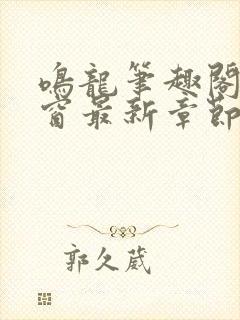 鸣龍筆趣閣
窗最新章節
郭久葳